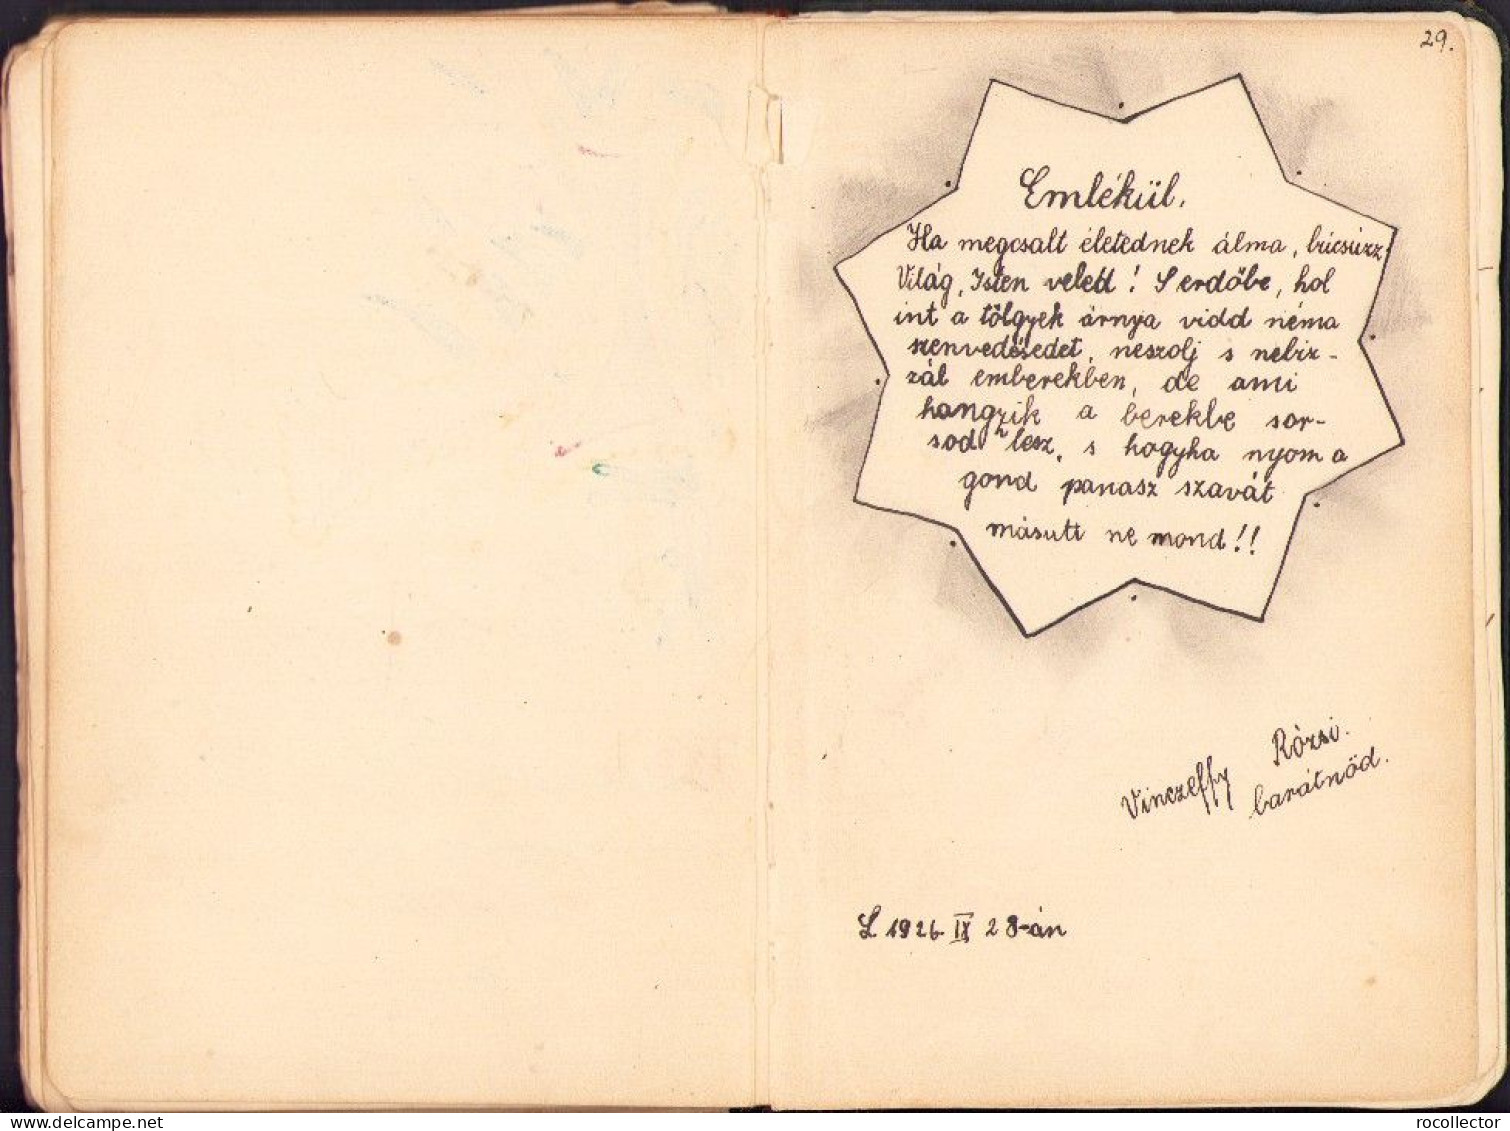 29.
Emlékül.
Ha megcsalt életednek álma, búcsúzz
Világ, Isten veled! S erdőbe, hol
int a tölgyek árnya vidd néma
szenvedésedet, neszolj s nebiz-
zál emberekben, de ami
hangzik a berekbe sor-
sod lesz, s hogyha nyom a
gond panasz szavát
másutt ne mond!!
Vinczeffy Rózsi.
barátnőd.
L 1926 IX 28-án
delcampe.net
rocollector